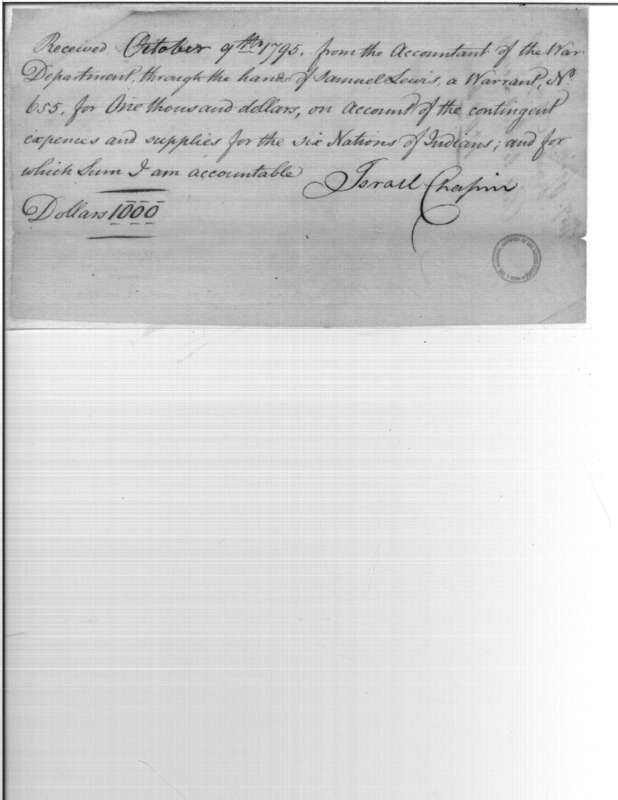 Received October 9th 1795. from the Accountant of the War
Department, through the hands of Samuel Lewis, a Warrant, No
655, for One thousand dollars, on account of the contingent
expences and supplies for the six Nations of Indians; and for
which Sum I am accountable
Israel Chapin
Dollars 1000